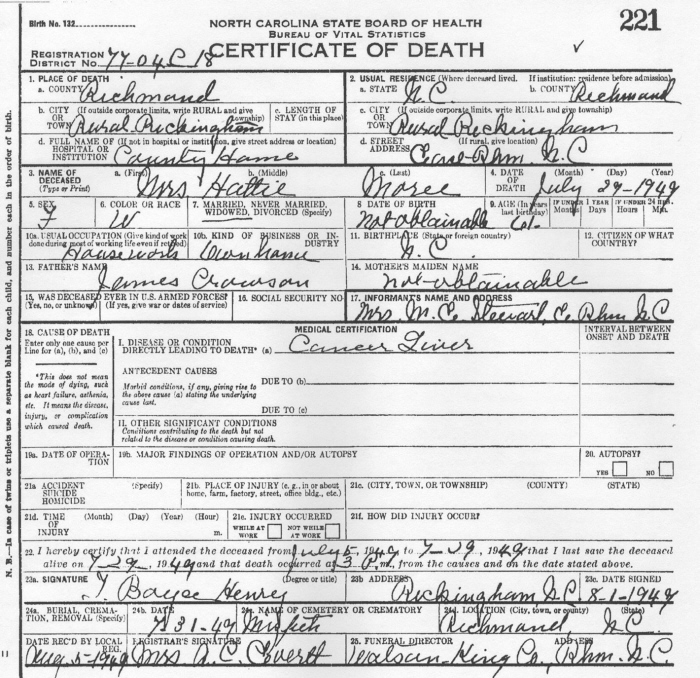 Birth No. 132
NORTH CAROLINA STATE BOARD OF HEALTH
221
BUREAU OF VITAL STATISTICS
REGISTRATION DISTRICT No. 77-04C 18
CERTIFICATE OF DEATH
1. PLACE OF DEATH
a. COUNTY Richmond
2. USUAL RESIDENCE (Where deceased lived. If institution: residence before admission)
a. STATE N.C. b. COUNTY Richmond
b. CITY (If outside corporate limits, write RURAL and give township) OR TOWN Rural Rockingham
c. LENGTH OF STAY (in this place)
c. CITY (If outside corporate limits, write RURAL and give township) OR TOWN Rural Rockingham
d. FULL NAME OF (If not in hospital or institution, give street address or location) HOSPITAL OR INSTITUTION County Home
d. STREET (If rural, give location) ADDRESS Rhm. N.C
3. NAME OF DECEASED (Type or Print)
a. (First) b. (Middle) c. (Last)
Mrs Hattie
4. DATE OF DEATH (Month) (Day) (Year) July 29-1949
5. SEX F
6. COLOR OR RACE W
7. MARRIED, NEVER MARRIED, WIDOWED, DIVORCED (Specify)
8 DATE OF BIRTH Not-obtainable
9. AGE (In years last birthday) IF UNDER 1 YEAR Months Days IF UNDER 24 HRS. Hours Min.
10a. USUAL OCCUPATION (Give kind of work done during most of working life even if retired) Housework
10b. KIND OF BUSINESS OR INDUSTRY Own home
11. BIRTHPLACE (State or foreign country) N.C.
12. CITIZEN OF WHAT COUNTRY?
13. FATHER'S NAME Crowson
14. MOTHER'S MAIDEN NAME Not-obtainable
15. WAS DECEASED EVER IN U.S. ARMED FORCES? (Yes, no, or unknown) (If yes, give war or dates of service)
16. SOCIAL SECURITY NO.
17. INFORMANT'S NAME AND ADDRESS Mrs. M.C. Stewart, E. Rhm N.C
18. CAUSE OF DEATH
Enter only one cause per Line for (a), (b), and (c)
*This does not mean the mode of dying, such as heart failure, asthenia, etc. It means the disease, injury, or complication which caused death.
MEDICAL CERTIFICATION
INTERVAL BETWEEN ONSET AND DEATH
I. DISEASE OR CONDITION DIRECTLY LEADING TO DEATH* (a) Cancer Liver
ANTECEDENT CAUSES
Morbid conditions, if any, giving rise to the above cause (a) stating the underlying cause last.
DUE TO (b)
DUE TO (c)
II. OTHER SIGNIFICANT CONDITIONS
Conditions contributing to the death but not related to the disease or condition causing death.
19a. DATE OF OPERATION
19b. MAJOR FINDINGS OF OPERATION AND/OR AUTOPSY
20. AUTOPSY?
YES NO
21a ACCIDENT SUICIDE HOMICIDE (Specify)
21b. PLACE OF INJURY (e. g., in or about home, farm, factory, street, office bldg., etc.)
21c. (CITY, TOWN, OR TOWNSHIP) (COUNTY) (STATE)
21d. TIME OF INJURY (Month) (Day) (Year) (Hour) m.
21e. INJURY OCCURRED
WHILE AT WORK NOT WHILE AT WORK
21f. HOW DID INJURY OCCUR?
22. I hereby certify that I attended the deceased from July 5, 1949 to 7-29, 1949 that I last saw the deceased
alive on 7-29, 1949 and that death occurred at 3 P.m., from the causes and on the date stated above.
23a. SIGNATURE (Degree or title) T. Boyce Henry
23b ADDRESS Rockingham N.C.
23c. DATE SIGNED 8-1-1949
24a. BURIAL, CREMATION, REMOVAL (Specify)
24b. DATE 7-31-49
24c. NAME OF CEMETERY OR CREMATORY
24d. LOCATION (City, town, or county) (State) Richmond N.C.
DATE REC'D BY LOCAL REG. Aug. 5-1949
REGISTRAR'S SIGNATURE Mrs Everett
25. FUNERAL DIRECTOR ADDRESS Watson-King Co., Rhm. N.C.
N. B.—In case of twins or triplets use a separate blank for each child, and number each in the order of birth.